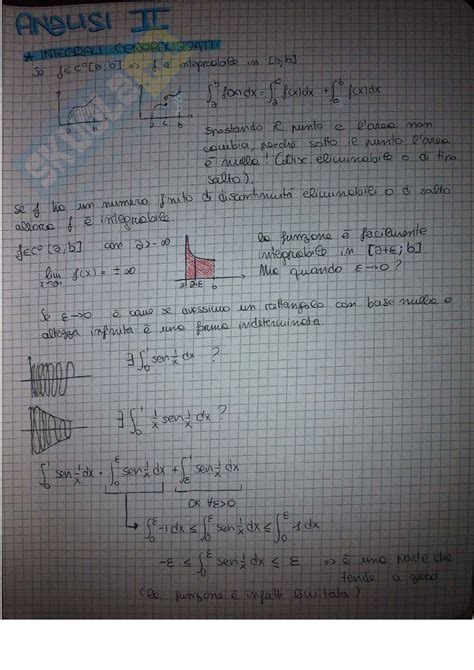 ANALISI II
* INTEGRALI GENERALIZZATI
Se f∈C⁰[a,b] => f è integrabile in [a,b]
∫_a^b f(x)dx = ∫_a^c f(x)dx + ∫_c^b f(x)dx
a b a c b
Spostando il punto c l'area non
cambia, perché sotto il punto l'area
è nulla! (Disc. eliminabile o di tipo
salto).
Se f ha un numero finito di discontinuità eliminabile o di salto
allora f è integrabile.
f∈C⁰(a,b] con a>-∞
lim_{x→a⁺} f(x) = ±∞
a a+ε b
La funzione è facilmente
integrabile in [a+ε;b].
Ma quando ε→0?
Se ε→0 è come se avessimo un rettangolo con base nulla e
altezza infinita è una forma indeterminata
∃∫_0^1 sen 1/x dx ?
∃∫_0^1 1/x sen 1/x dx ?
∫_0^1 sen 1/x dx = ∫_0^ε sen 1/x dx + ∫_ε^1 sen 1/x dx
OK ∀ε>0
∫_0^ε -1dx ≤ ∫_0^ε sen 1/x dx ≤ ∫_0^ε 1dx
-ε ≤ ∫_0^ε sen 1/x dx ≤ ε => è una parte che
tende a zero
(la funzione è infatti limitata).